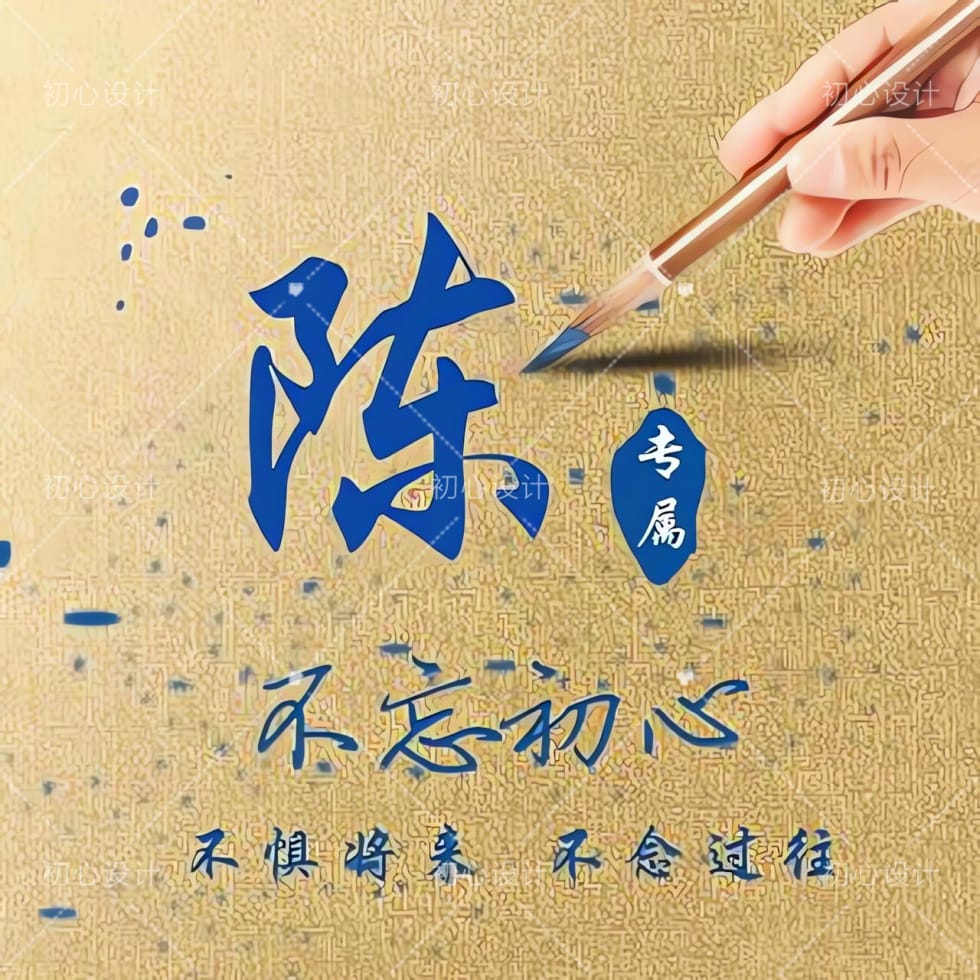 初心设计 初心设计 初心设计
陈
专属
初心设计 初心设计 初心设计
不忘初心
不惧将来 不念过往
初心设计 初心设计 初心设计